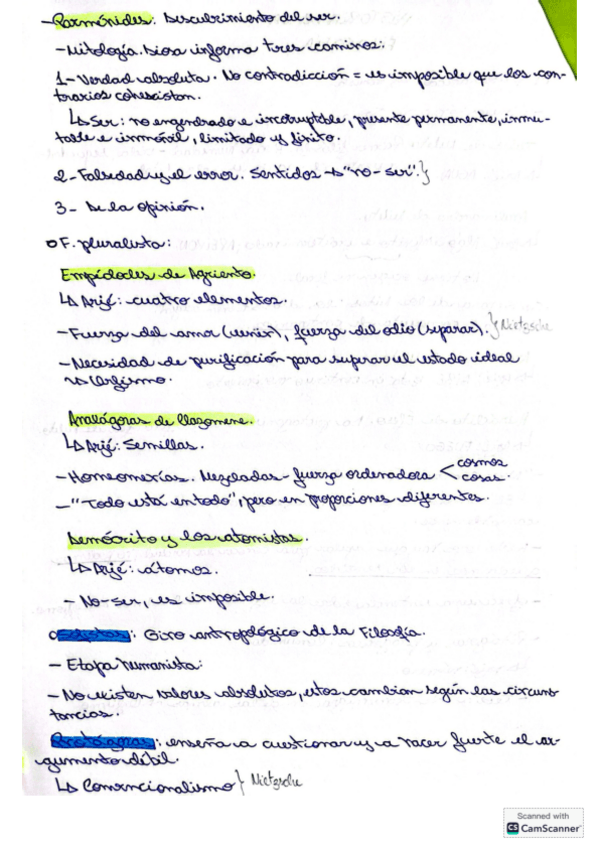 - Parménides: Descubrimiento del ser.
- Mitología. Diosa informa tres caminos.
1 - Verdad absoluta. No contradicción = es imposible que los con-
trarios cohexistan.
↳ Ser: no engendrado e incorruptible, presente permanente, inmu-
table e inmóvil, limitado y finito.
2 - Falsedad y el error. Sentidos → "no-ser".}
3 - De la opinión.
o F. pluralista:
Empédocles de Agriento.
↳ Arjé: cuatro elementos
- Fuerza del amor (unir), fuerza del odio (separar). } Nietzsche
- Necesidad de purificación para suprar el estado ideal
↳ Orfismo.
Anaxágoras de Clazomene.
↳ Arjé: Semillas.
- Homeomerías. Mezcladas - fuerza ordenadora < cosmos
cosas.
- "Todo está en todo", pero en proporciones diferentes.
Demócrito y los atomistas.
↳ Arjé: átomos.
- No-ser, es imposible.
o Sofistas: Giro antropológico de la Filosofía.
- Etapa humanista:
- No existen valores absolutos, estos cambian según las circuns
tancias.
Protágoras: enseña a cuestionar y a hacer fuerte el ar-
gumento débil.
↳ Convencionalismo } Nietzsche
Scanned with
CS CamScanner